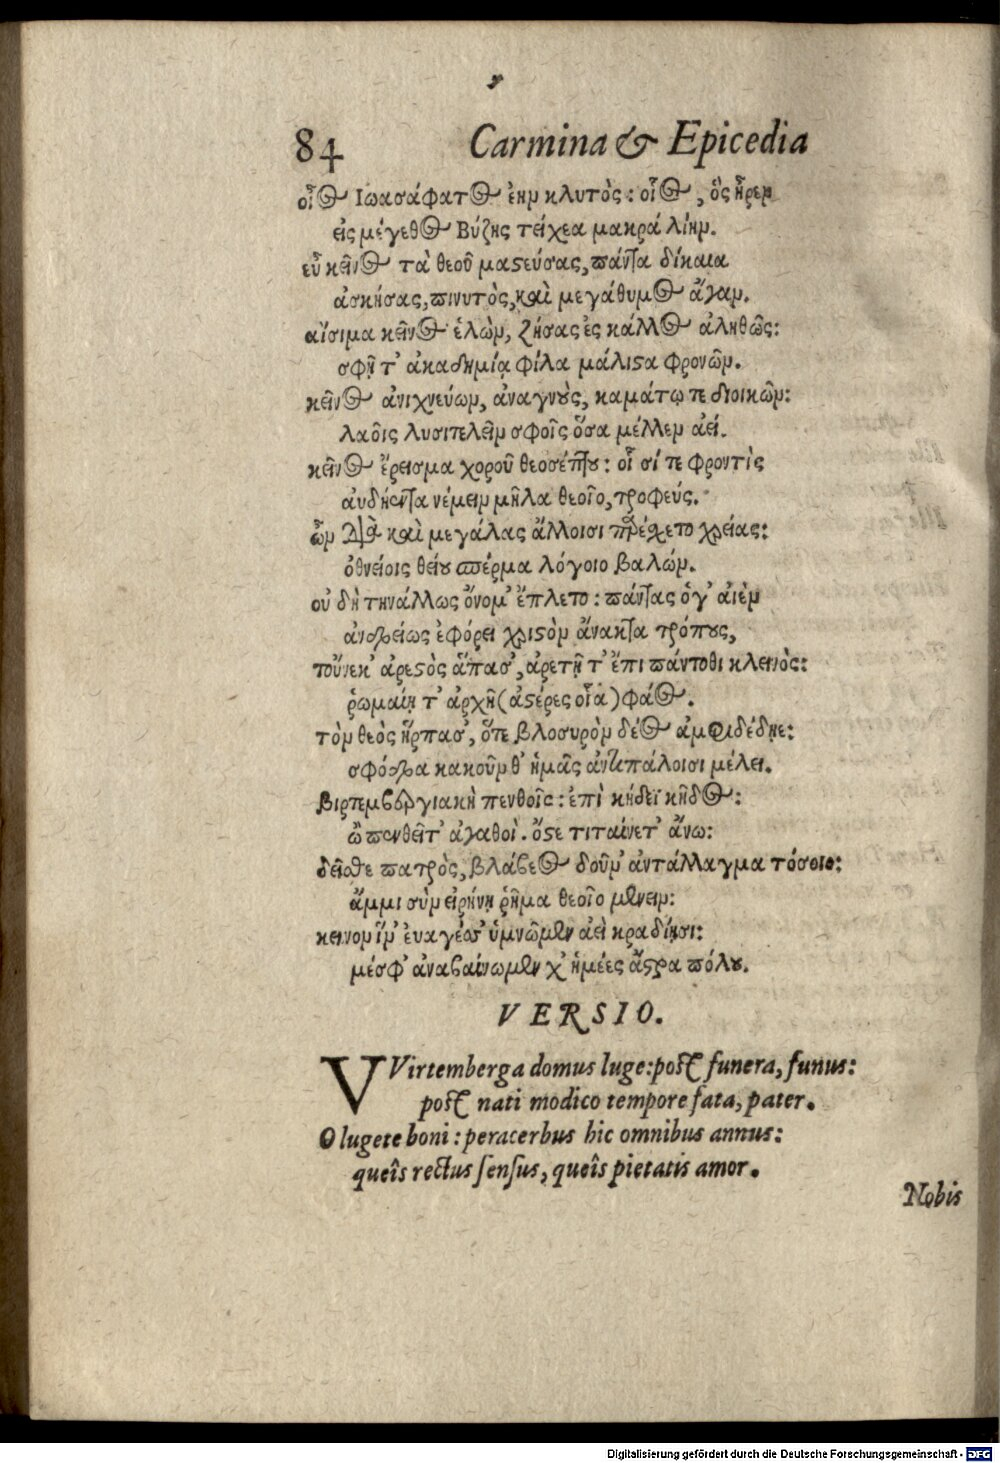 84 Carmina & Epicedia
οἷος Ιωασάφατος ἐὴν κλυτὸς: οἷος, ὃς ᾖρεν
εἰς μέγεθος Βύζης τείχεα μακρὰ λίην.
εὖ κεῖνος τὰ θεοῦ μαστεύσας, πάντα δίκαια
ἀσκήσας, πινυτὸς, καὶ μεγάθυμος ἄγαν.
αἴσιμα κεῖνος ἑλὼν, ζήσας ἐς κάλλος ἀληθῶς:
σφῇ τ' ἀκαδημίᾳ φίλα μάλιστα φρονῶν.
κεῖνος ἀνιχνεύων, ἀναγνοὺς, καμάτῳ τε διοικῶν:
λαοῖς λυσιτελεῖν σφοῖς ὅσα μέλλεν ἀεί.
κεῖνος ἔρεισμα χοροῦ θεοσέπτου: οἷσί τε φροντὶς
αὐδήεντα νέμειν μῆλα θεοῖο, τροφεύς.
ὧν διὰ καὶ μεγάλας ἄλλοισι παρέσχετο χρείας:
ὀθνείοις θείου σπέρμα λόγοιο βαλών.
οὐ δὴ τηνάλλως ὄνομ' ἔπλετο: πάντας ὅγ' αἰὲν
ἀνδρείως ἐφόρει χριστὸν ἄνακτα τρόπους,
τοὔνεκ' ἀρεστὸς ἅπασ', ἀρετῇ τ' ἔπι πάντοθι κλεινὸς:
ῥωμαίῃ τ' ἀρχῇ (ἀστέρες οἷα) φάος.
τὸν θεὸς ἥρπασ', ὅτε βλοσυρὸν δέος ἀμφιδέδηε:
σφόδρα κακοῦν θ' ἡμᾶς ἀντιπάλοισι μέλει.
βιρτεμβεργιακὴ πενθοῖς: ἐπὶ κήδεϊ κῆδος:
ὢ πενθεῖτ' ἀγαθοὶ. ὅστε τιταίνετ' ἄνω:
δεῖσθε πατρὸς, βλάβεος δοῦν' ἀντάλλαγμα τόσοιο:
ἄμμι σὺν εἰρήνῃ ῥῆμα θεοῖο μένειν:
κεῖνον ἵν' εὐαγέως ὑμνῶμεν ἀεὶ κραδίῃσι:
μέσφ' ἀναβαίνωμεν χ' ἡμέες ἄστρα πόλου.
VERSIO.
VVirtemberga domus luge: post funera, funus:
post nati modico tempore fata, pater.
O lugete boni: peracerbus hic omnibus annus:
queîs rectus sensus, queîs pietatis amor.
Nobis
Digitalisierung gefördert durch die Deutsche Forschungsgemeinschaft - DFG